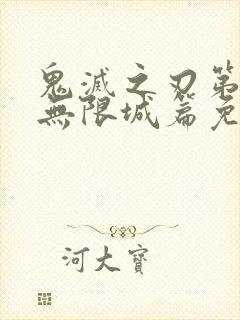 鬼滅之刃第
無限城篇免
河大寶